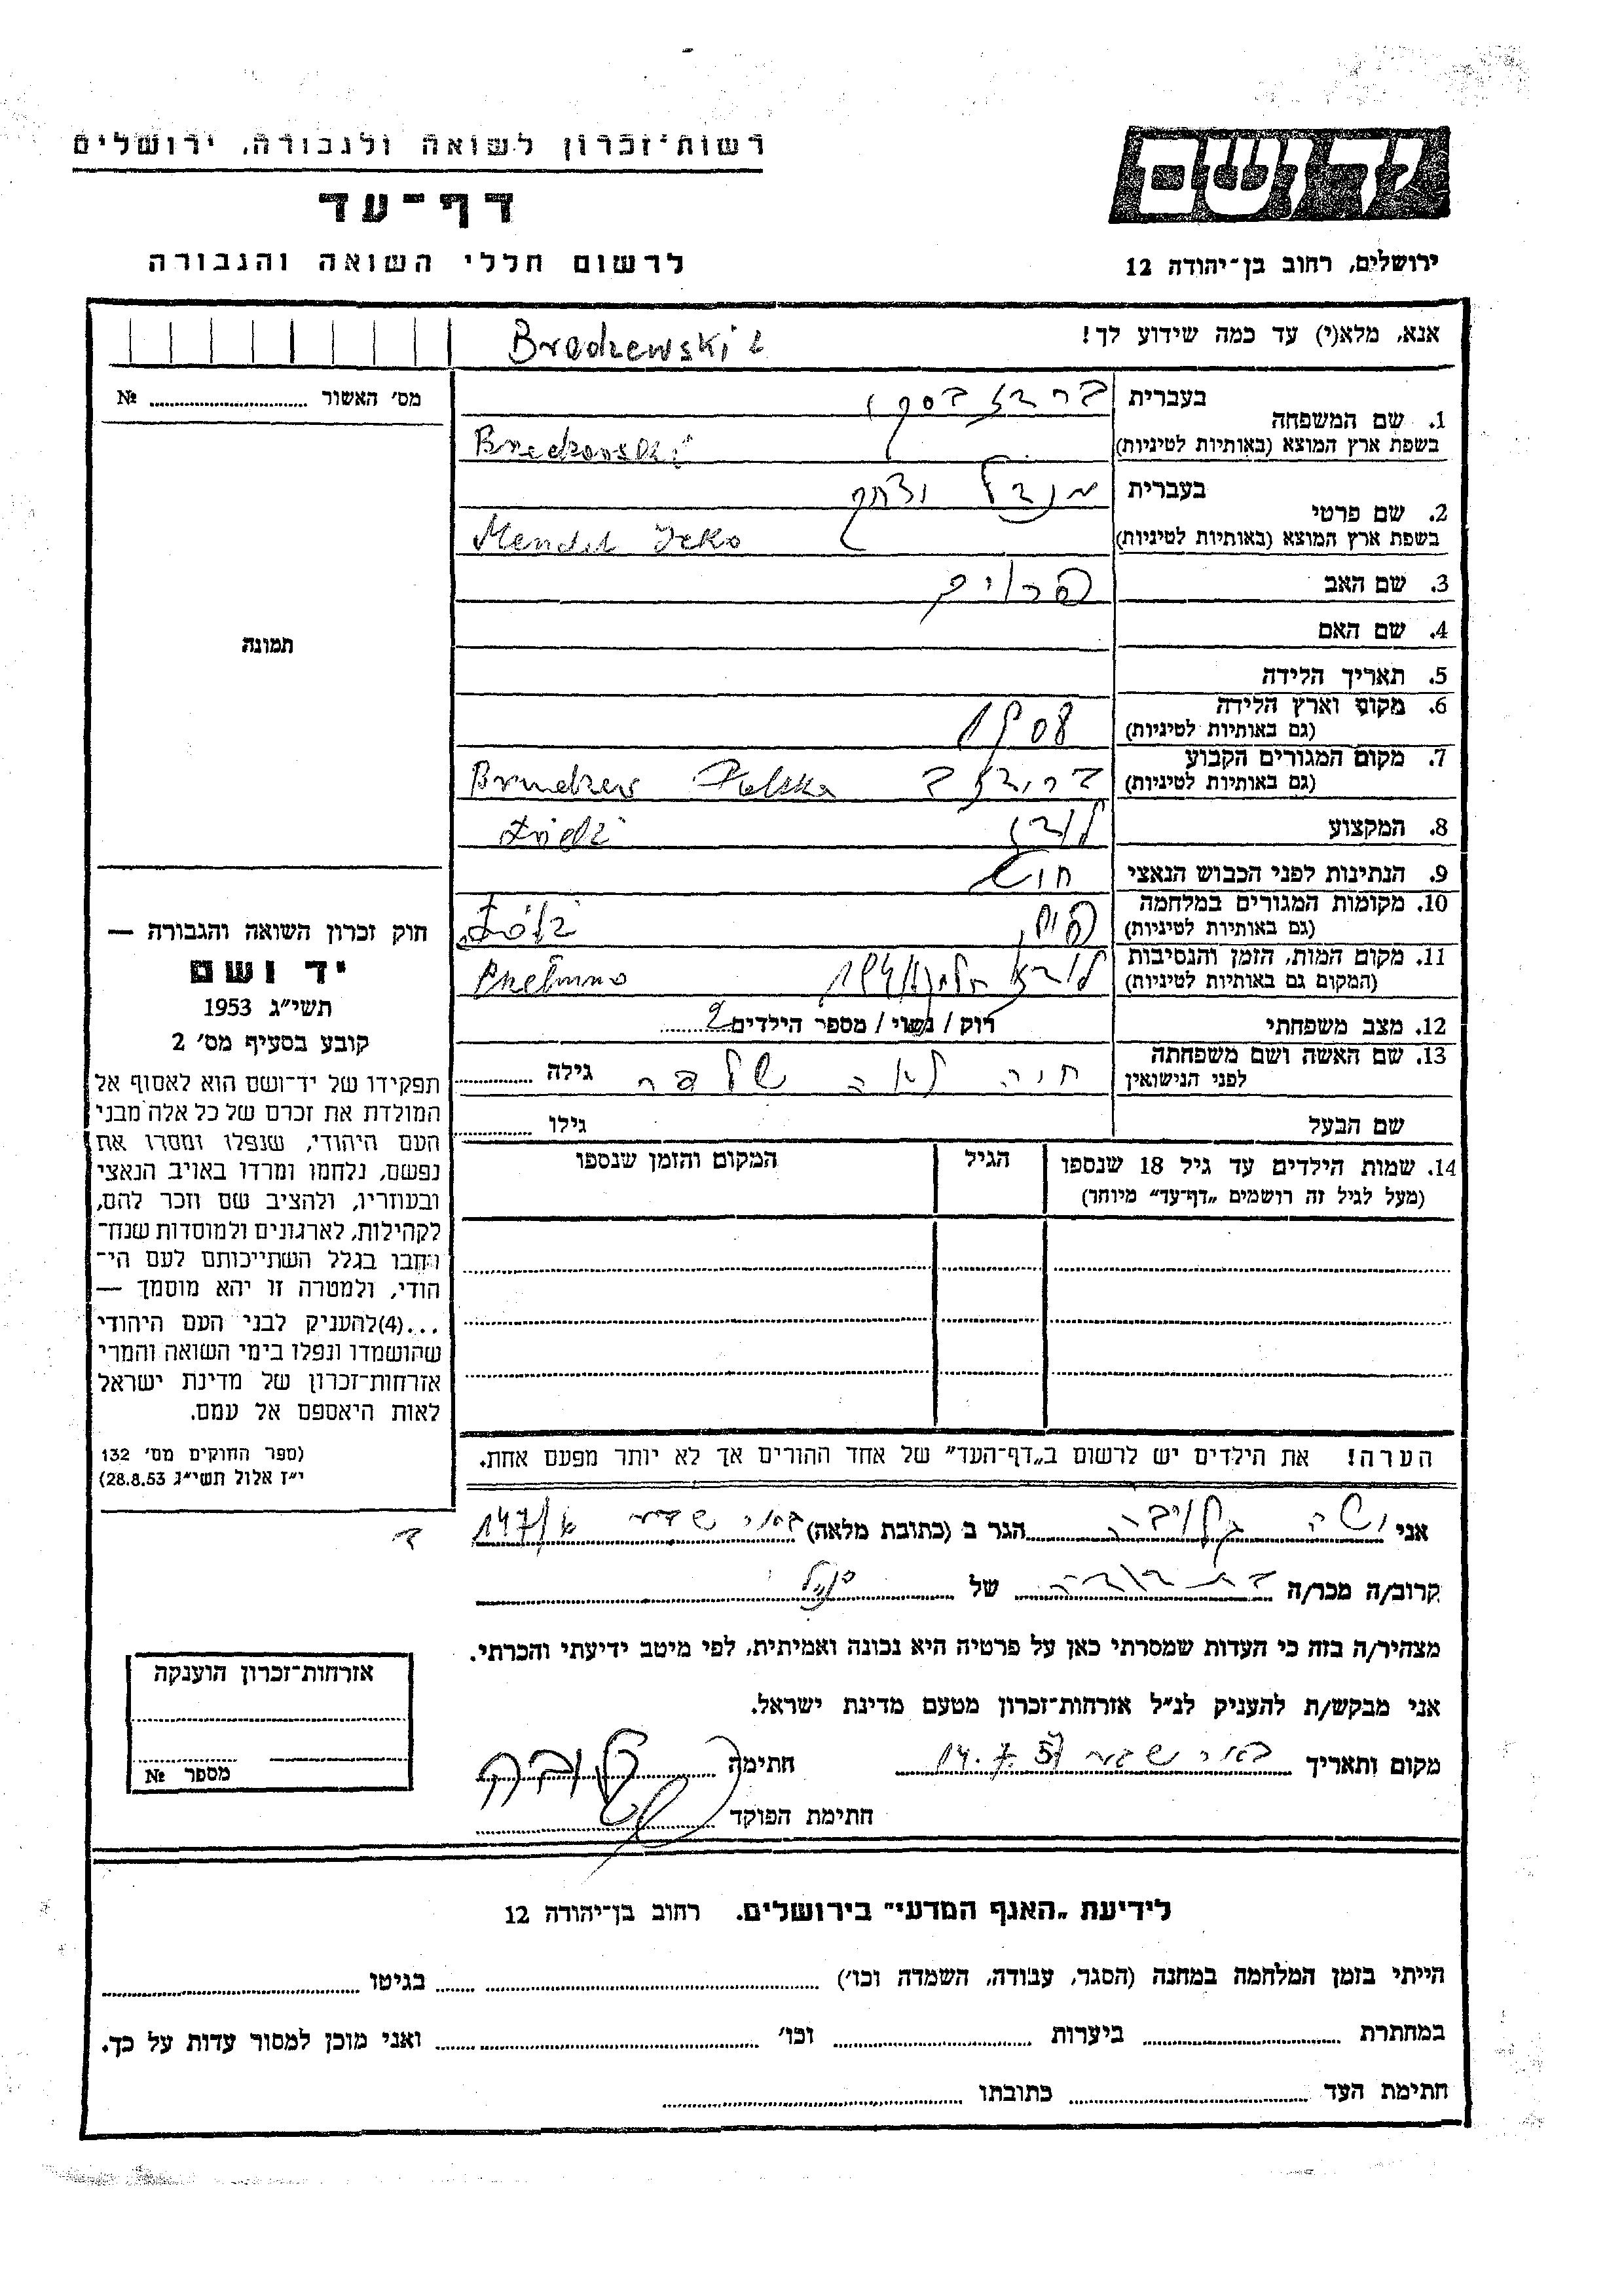 רשות־זכרון לשואה ולגבורה, ירושלים
דף־עד
לרשום חללי השואה והגבורה
יד ושם
ירושלים, רחוב בן־יהודה 12
אנא, מלא(י) עד כמה שידוע לך!
מס׳ האשור № ........
בעברית
1. שם המשפחה
בשפת ארץ המוצא (באותיות לטיניות)
בעברית
2. שם פרטי מנדל
בשפת ארץ המוצא (באותיות לטיניות) Mendel
3. שם האב
4. שם האם
5. תאריך הלידה
6. מקום וארץ הלידה 1908
(גם באותיות לטיניות)
7. מקום המגורים הקבוע
(גם באותיות לטיניות) Polska
8. המקצוע
9. הנתינות לפני הכבוש הנאצי
10. מקומות המגורים במלחמה
(גם באותיות לטיניות)
11. מקום המות, הזמן והנסיבות
(המקום גם באותיות לטיניות)
12. מצב משפחתי רוק / נשוי / מספר הילדים 2
13. שם האשה ושם משפחתה חיה לאה גילה ........
לפני הנישואין
שם הבעל גילו ........
14. שמות הילדים עד גיל 18 שנספו הגיל המקום והזמן שנספו
(מעל לגיל זה רושמים „דף־עד” מיוחד)
הערה! את הילדים יש לרשום ב„דף־העד” של אחד ההורים אך לא יותר מפעם אחת.
תמונה
חוק זכרון השואה והגבורה —
יד ושם
תשי״ג 1953
קובע בסעיף מס׳ 2
תפקידו של יד־ושם הוא לאסוף אל
המולדת את זכרם של כל אלה מבני
העם היהודי, שנפלו ומסרו את
נפשם, נלחמו ומרדו באויב הנאצי
ובעוזריו, ולהציב שם וזכר להם,
לקהילות, לארגונים ולמוסדות שנח־
רבו בגלל השתייכותם לעם הי־
הודי, ולמטרה זו יהא מוסמך —
...(4)להעניק לבני העם היהודי
שהושמדו ונפלו בימי השואה והמרי
אזרחות־זכרון של מדינת ישראל
לאות היאספם אל עמם.
(ספר החוקים מס׳ 132
י״ז אלול תשי״ג 28.8.53)
אני הגר ב (כתובת מלאה) באר שבע
קרוב/ה מכר/ה של
מצהיר/ה בזה כי העדות שמסרתי כאן על פרטיה היא נכונה ואמיתית, לפי מיטב ידיעתי והכרתי.
אני מבקש/ת להעניק לנ״ל אזרחות־זכרון מטעם מדינת ישראל.
מקום ותאריך באר שבע חתימה
חתימת הפוקד
אזרחות־זכרון הוענקה
מספר №
לידיעת „האגף המדעי” בירושלים. רחוב בן־יהודה 12
הייתי בזמן המלחמה במחנה (הסגר, עבודה, השמדה וכו׳) ........ בגיטו ........
במחתרת ........ ביערות ........ וכו׳ ........ ואני מוכן למסור עדות על כך.
חתימת העד ........ כתובתו ........